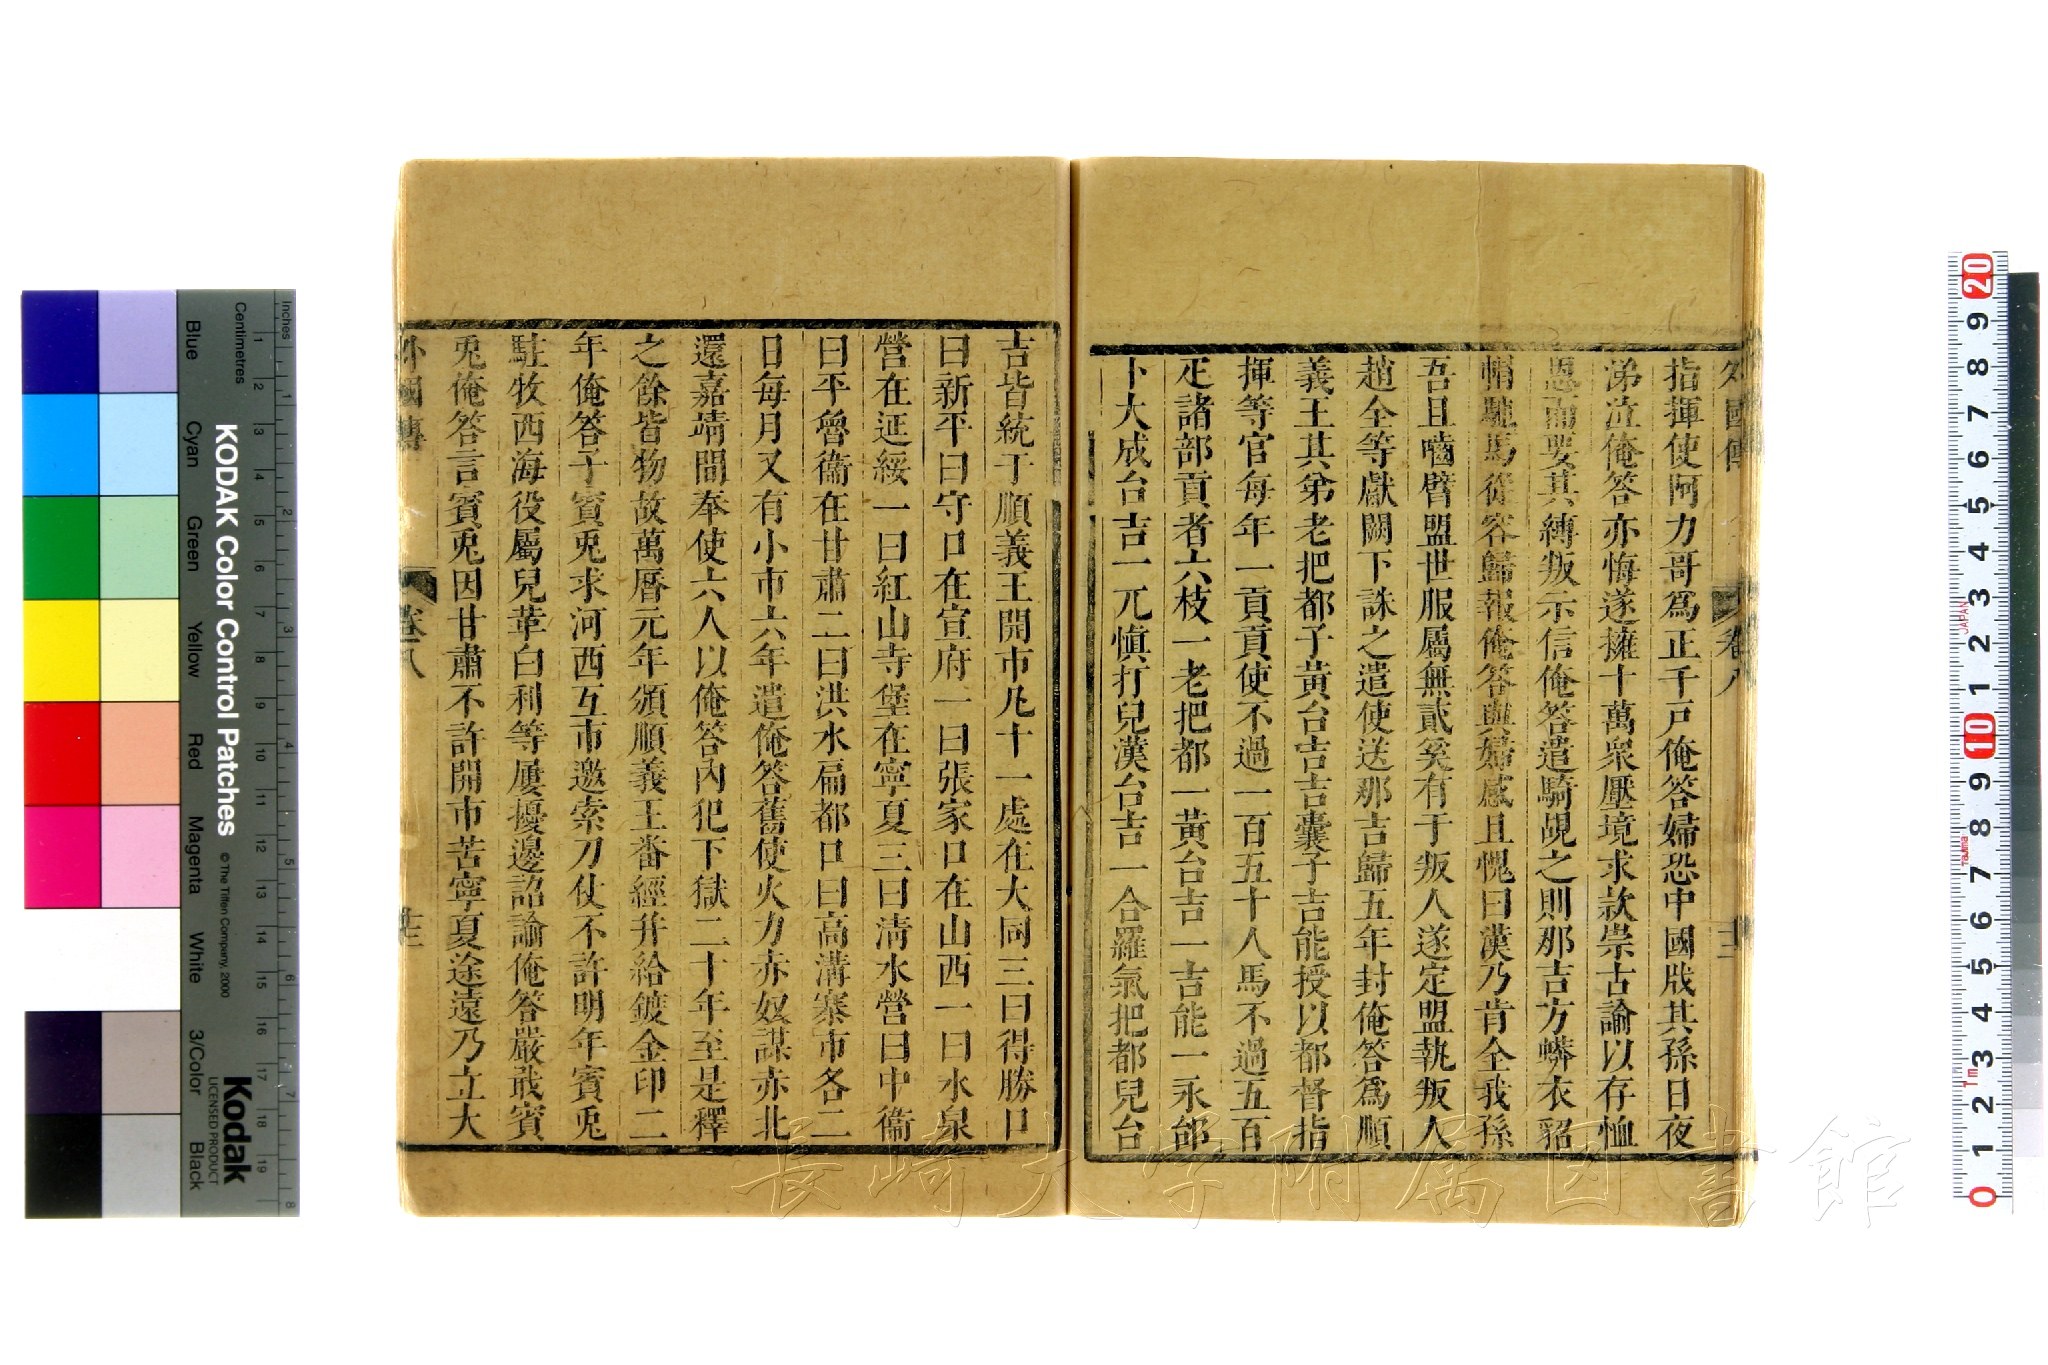 外國傳 卷八
指揮使阿力哥爲正千戸俺答婦恐中國戕其孫日夜
涕泣俺答亦悔遂擁十萬衆壓境求款崇古諭以存恤
恩而要其縛叛示信俺答遣騎覘之則那吉方蟒衣貂
帽馳馬從容歸報俺答與婦感且愧曰漢乃肯全我孫
吾且嚙臂盟世服屬無貳奚有于叛人遂定盟執叛人
趙全等獻闕下誅之遣使送那吉歸五年封俺答爲順
義王其弟老把都子黃台吉吉囊子吉能授以都督指
揮等官每年一貢貢使不過一百五十人馬不過五百
疋諸部貢者六枝一老把都一黃台吉一吉能一永邵
卜大成台吉一兀愼打兒漢台吉一合羅氣把都兒台
吉皆統于順義王開市凡十一處在大同三曰得勝口
曰新平曰守口在宣府一曰張家口在山西一曰水泉
營在延綏一曰紅山寺堡在寧夏三曰清水營曰中衞
曰平魯衞在甘肅二曰洪水扁都口曰高溝寨市各二
日每月又有小市六年遣俺答舊使火力赤奴謀赤北
還嘉靖間奉使六人以俺答內犯下獄二十年至是釋
之餘皆物故萬曆元年頒順義王番經并給鍍金印二
年俺答子賓兎求河西互市邀索刀仗不許明年賓兎
駐牧西海役屬兒革白利等屢擾邊詔諭俺答嚴戢賓
兎俺答言賓兎因甘肅不許開市苦寧夏途遠乃立大
外國傳 卷八 廿三
KODAK Color Control Patches
© The Tiffen Company, 2000
Kodak
LICENSED PRODUCT
Blue Cyan Green Yellow Red Magenta White 3/Color Black
Centimetres
Inches
1 2 3 4 5 6 7 8 9 10 11 12 13 14 15 16 17 18 19
1 2 3 4 5 6 7 8
20 9 8 7 6 5 4 3 2 1 10 9 8 7 6 5 4 3 2 1 0
JAPAN
Tajima
1m
長崎大学附属図書館